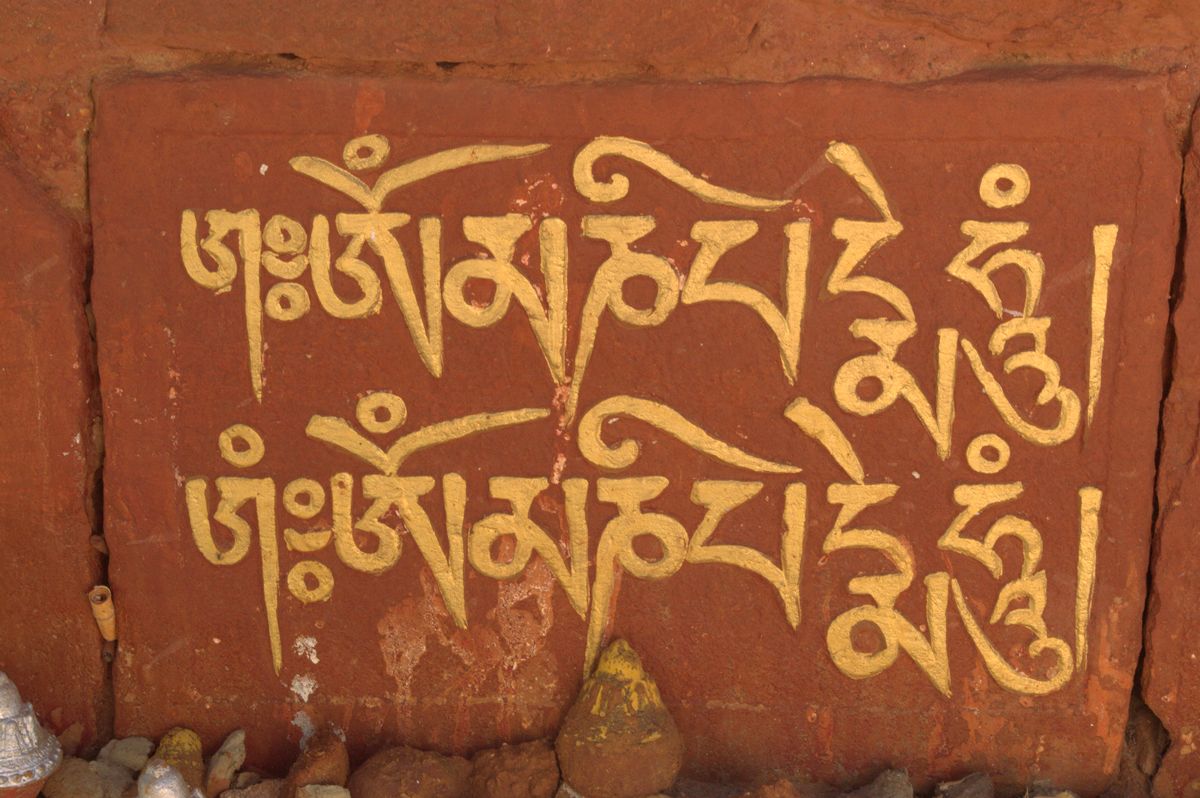 ༄༅ཨོཾམཎིཔདྨེཧཱུྃ།
༄༅ཨོཾམཎིཔདྨེཧཱུྃ།